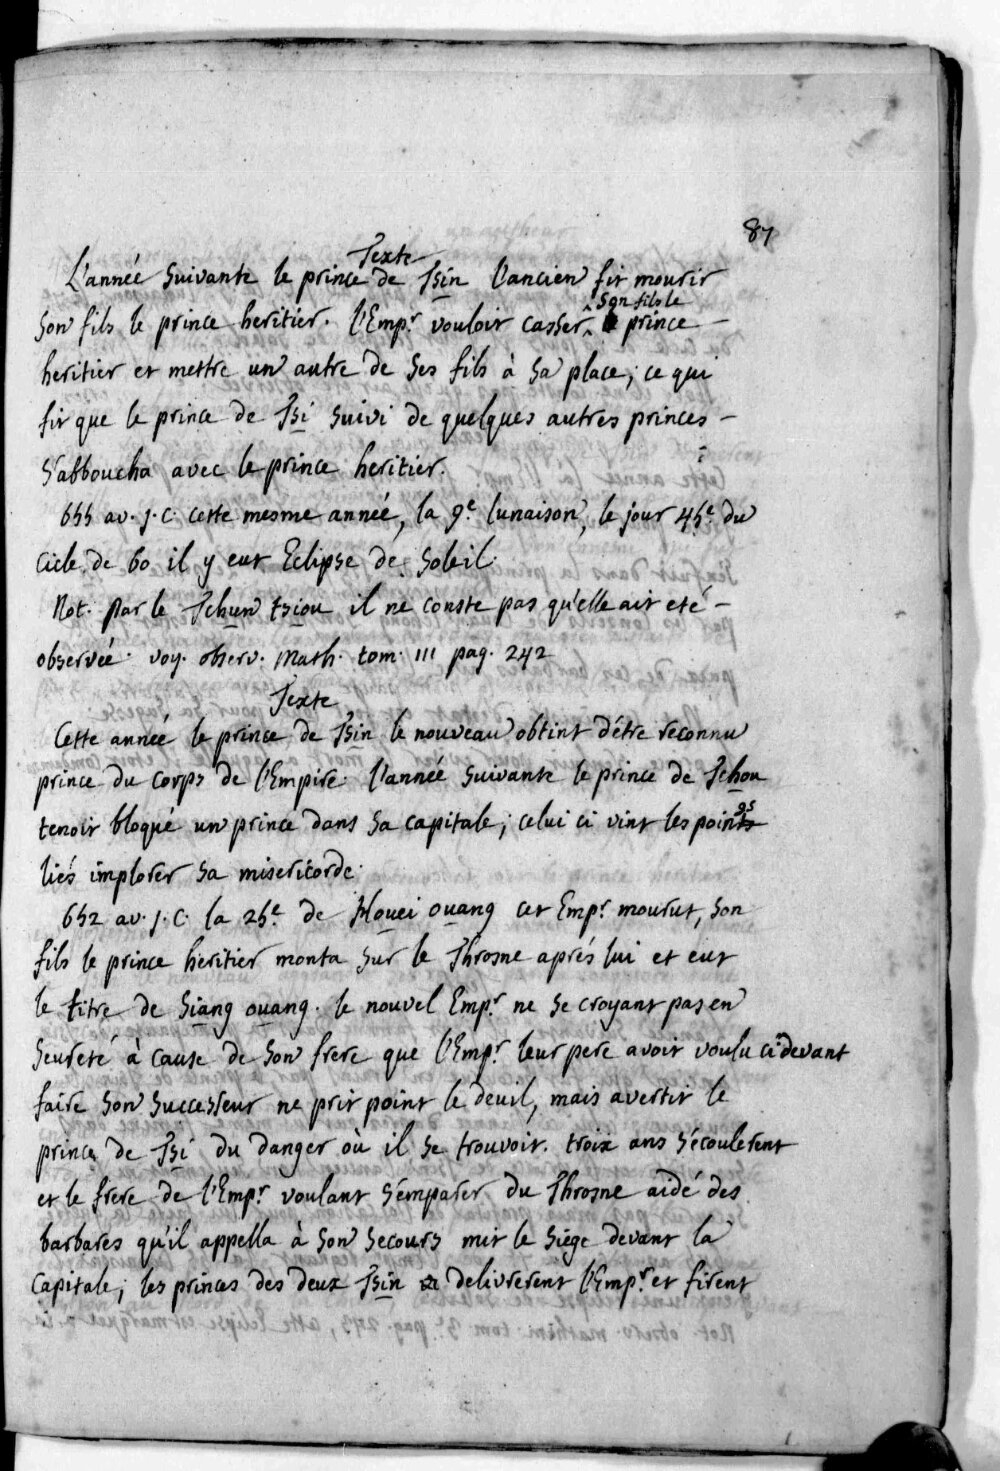 87
Texte
L'année suivante le prince de Tsin l'ancien fit mourir
son fils le prince heritier. l'Emp.r vouloit casser son fils le prince
heritier et mettre un autre de ses fils à sa place; ce qui
fit que le prince de Tsi suivi de quelques autres princes
s'abboucha avec le prince heritier.
655 av. j. C. cette mesme année, la 9.e lunaison, le jour 45.e du
cicle de 60 il y eut Eclipse de soleil.
Not. par le Tchun tsiou il ne conste pas qu'elle ait eté
observée. voy. observ. Math. tom. III pag. 242
Texte
Cette année le prince de Tsin le nouveau obtint d'étre reconnu
prince du corps de l'Empire. l'année suivante le prince de Tchou
tenoit bloqué un prince dans sa capitale; celui ci vint les poings
liés implorer sa misericorde.
652 av. j. C. la 25.e de Houei ouang cet Emp.r mourut, son
fils le prince heritier monta sur le Throsne aprés lui et eut
le titre de Siang ouang. le nouvel Emp.r ne se croyant pas en
seureté à cause de son frere que l'Emp.r leur pere avoit voulu ci devant
faire son successeur ne prit point le deuil, mais avertit le
prince de Tsi du danger où il se trouvoit. troix ans s'écoulerent
et le frere de l'Emp.r voulant s'emparer du Throsne aidé des
barbares qu'il appella à son secours mit le siége devant la
capitale; les princes des deux Tsin delivrerent l'Emp.r et firent